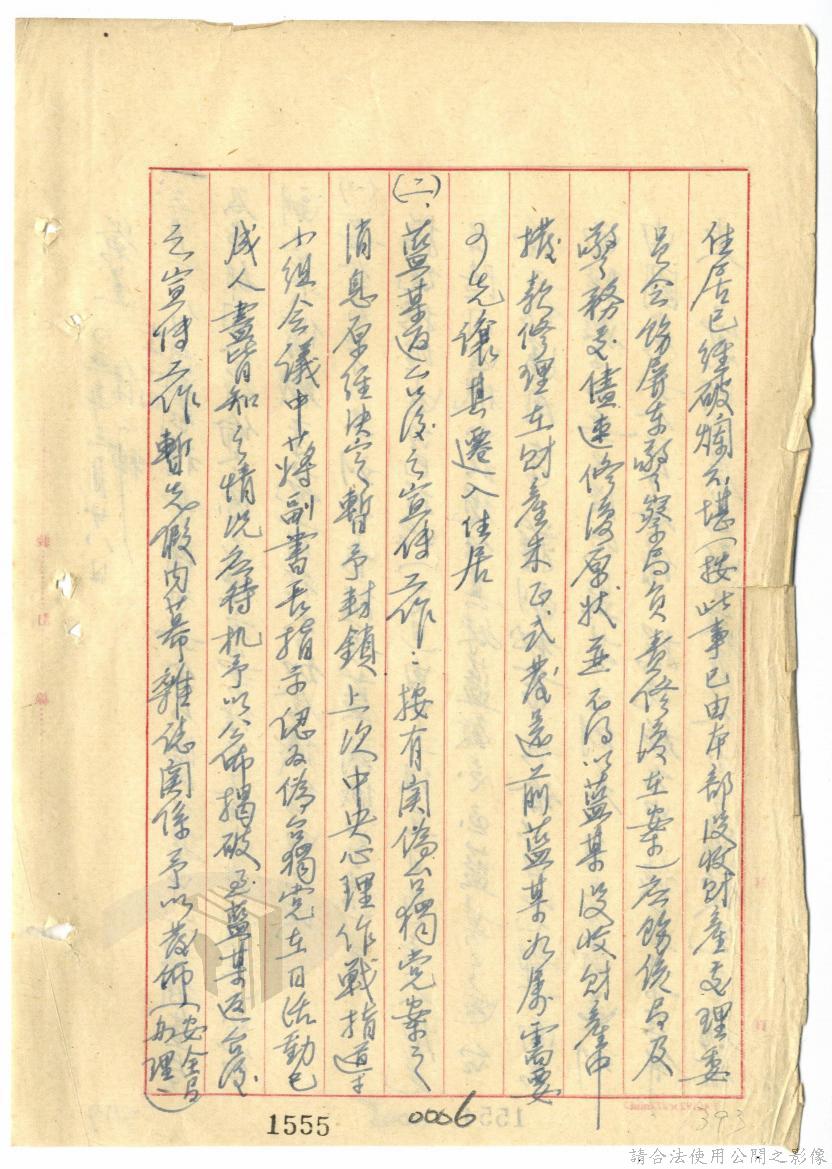 住居已經破爛不堪(按此事已由本部沒收財產處理委
員会飭屏東警察局負責修復在案)应飭侯局及
警務处儘速修復原狀並不得以藍某沒收財產中
撥款修理在財產未正式發還前藍某如屬需要
可先讓其遷入住居
(二)、藍某返台後之宣傳工作:按有関偽台獨党案之
消息原經決定暫予封鎖上次中央心理作戰指導
小組会議中蔣副書長指示認為偽台獨党在日活動已
成人盡皆知之情况应待机予以公佈揭破至藍某返台後
之宣傳工作暫先假内幕雜誌関係予以發佈(安全局办理)
1555
0006
393
請合法使用公開之影像